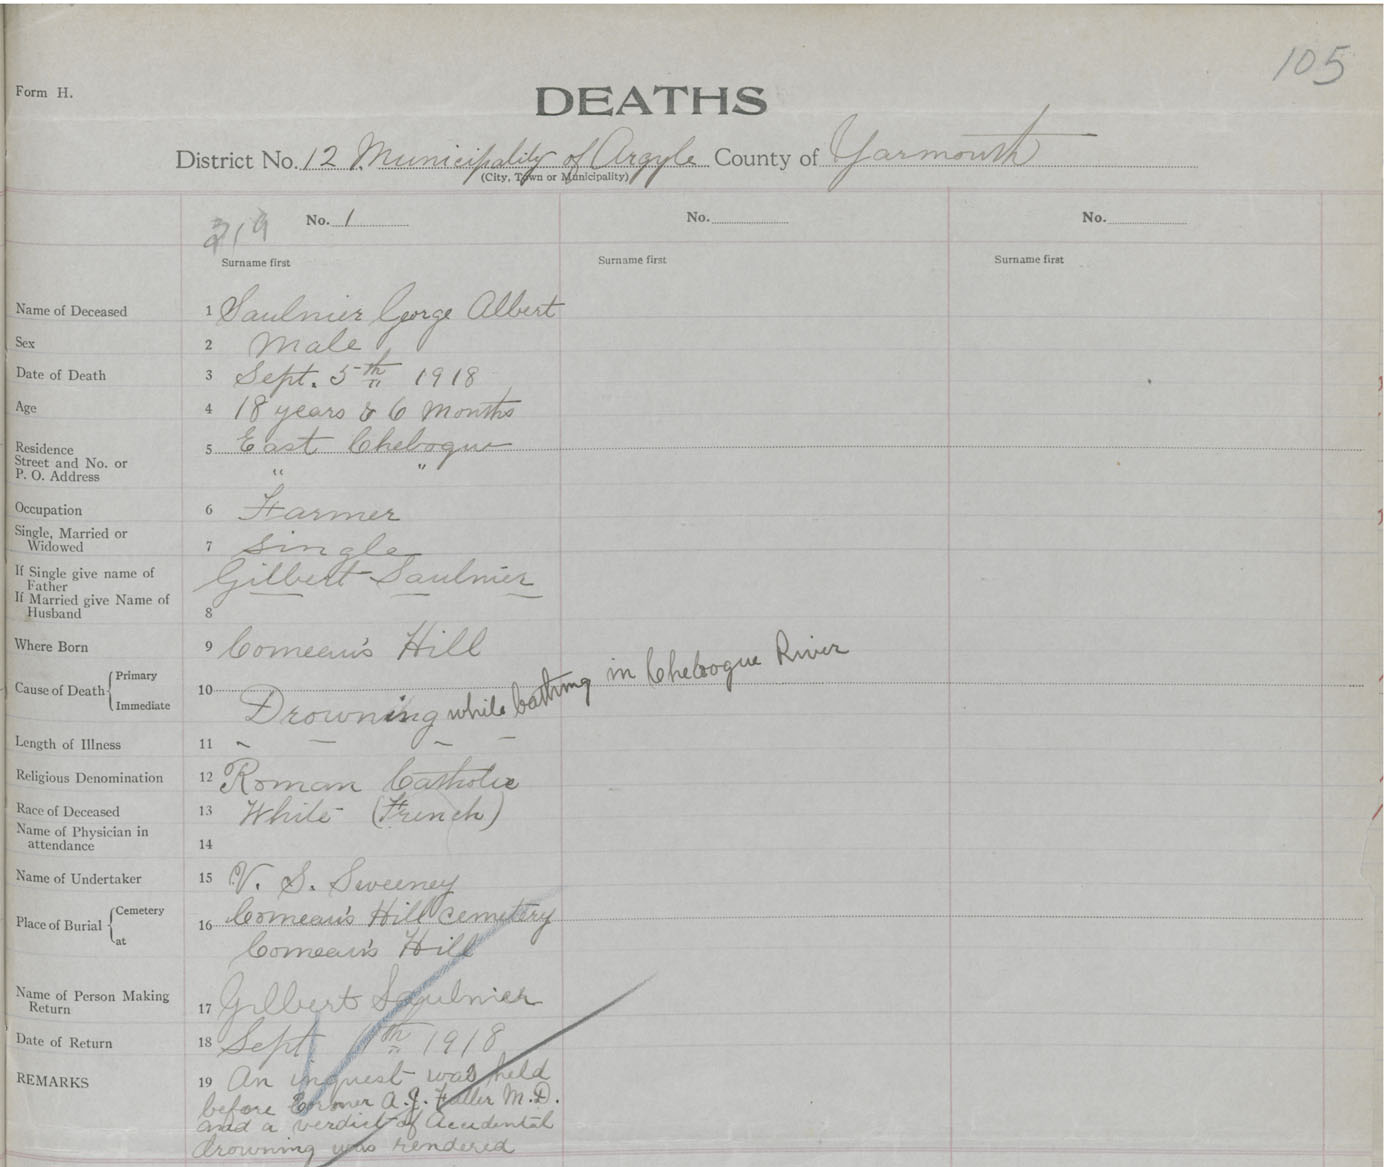 105
Form H.
DEATHS
District No. 12 Municipality of Argyle County of Yarmouth
(City, Town or Municipality)
219 No. 1 No. No.
Surname first Surname first Surname first
Name of Deceased 1 Saulnier George Albert
Sex 2 Male
Date of Death 3 Sept. 5th 1918
Age 4 18 years & 6 Months
Residence 5 East Chebogue
Street and No. or
P. O. Address " "
Occupation 6 Farmer
Single, Married or
Widowed 7 Single
If Single give name of
Father Gilbert Saulnier
If Married give Name of
Husband 8
Where Born 9 Comeau's Hill
Cause of Death Primary 10
Immediate Drowning while bathing in Chebogue River
Length of Illness 11 - - - -
Religious Denomination 12 Roman Catholic
Race of Deceased 13 White (French)
Name of Physician in
attendance 14
Name of Undertaker 15 V. S. Sweeney
Place of Burial Cemetery 16 Comeau's Hill Cemetery
at Comeau's Hill
Name of Person Making
Return 17 Gilbert Saulnier
Date of Return 18 Sept th 1918
REMARKS 19 An inquest was held
before Coroner A. J. Fuller M.D.
and a verdict of Accidental
drowning was rendered